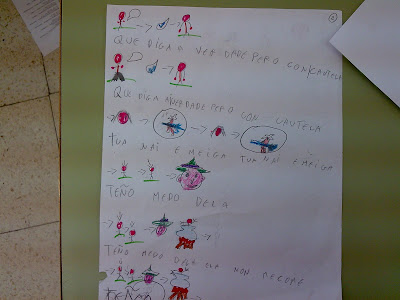 QUE DIGA A VERDADE PERO CON CAUTELA
QUE DIGA A VERDADE PERO CON CAUTELA
TUA NAI E MEIGA TUA NAI E MEIGA
TEÑO MEDO DELA
TEÑO MEDO DELA
TEÑO